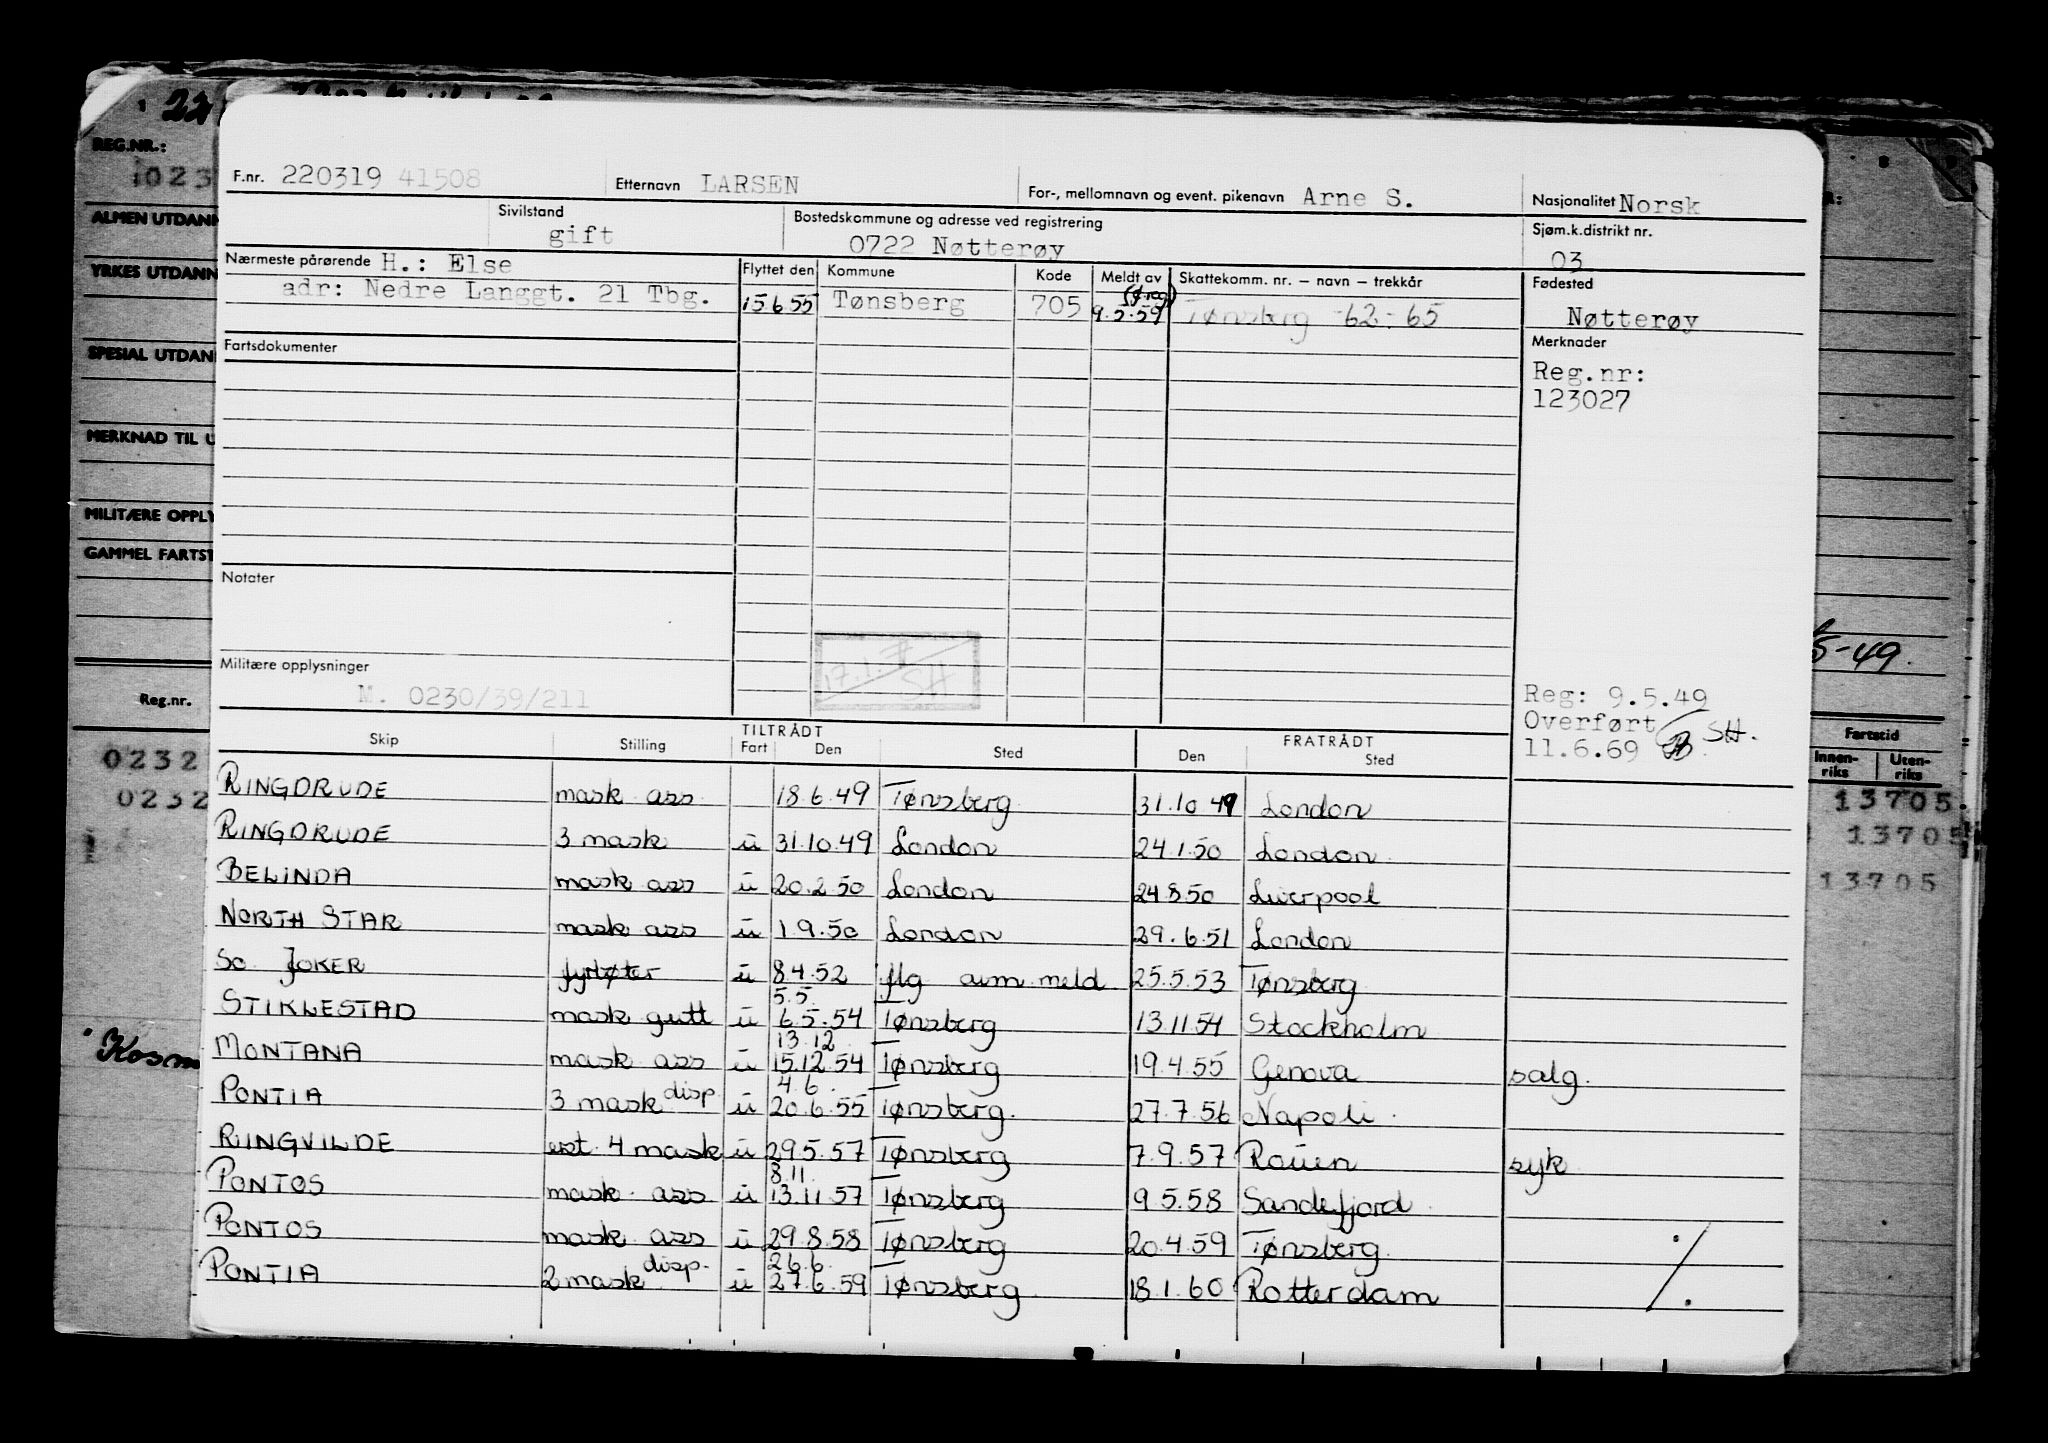 REG.NR.:
ALMEN UTDANN
YRKES UTDANN
SPESIAL UTDAN
MERKNAD TIL U
MILITÆRE OPPLY
GAMMEL FARTST
Reg.nr.
0232
0232
Kosm
F.nr. 220319 41508 Etternavn LARSEN For-, mellomnavn og event. pikenavn Arne S. Nasjonalitet Norsk
Sivilstand gift Bostedskommune og adresse ved registrering 0722 Nøtterøy Sjøm.k.distrikt nr. 03
Nærmeste pårørende H.: Else
adr: Nedre Langgt. 21 Tbg.
Flyttet den Kommune Kode Meldt av Skattekomm. nr. – navn – trekkår Fødested
15.6.55 Tønsberg 705 9.5.59 Tønsberg -62-65 Nøtterøy
Fartsdokumenter
Merknader
Reg.nr:
123027
Notater
17.1. SH
Militære opplysninger
M. 0230/39/211
Reg: 9.5.49
Overført
11.6.69 SH.
5-49.
TILTRÅDT FRATRÅDT
Skip Stilling Fart Den Sted Den Sted
RINGDRUDE mask ass 18.6.49 Tønsberg 31.10 49 London
RINGDRUDE 3 mask u 31.10.49 London 24.1.50 London
BELINDA mask ass u 20.2 50 London 24.8.50 Liverpool
NORTH STAR mask ass u 1.9.50 London 29.6.51 London
Sc JOKER fyrbøter u 8.4.52 flg aum meld 25.5.53 Tønsberg
STIKLESTAD mask gutt u 5.5. 6.5.54 Tønsberg 13.11.54 Stockholm
MONTANA mask ass u 13.12. 15.12.54 Tønsberg 19.4.55 Genova salg.
PONTIA 3 mask disp u 4.6. 20.6.55 Tønsberg. 27.7.56 Napoli
RINGVILDE ext. 4 mask u 29.5.57 Tønsberg 7.9.57 Rouen syk
PONTOS mask ass u 8.11. 13.11.57 Tønsberg 9.5.58 Sandefjord
PONTOS mask ass u 29.8.58 Tønsberg 20.4.59 Tønsberg.
PONTIA 2 mask disp. u 26.6. 27.6.59 Tønsberg 18.1.60 Rotterdam
Fartstid
Innen-riks Uten-riks
13705.
13705
13705